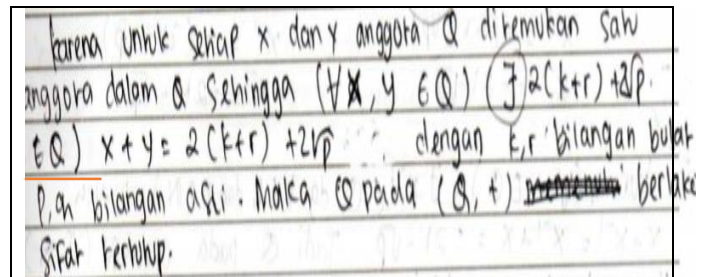 karena untuk setiap x dan y anggota Q ditemukan satu
anggota dalam Q sehingga (∀x, y ∈ Q) (∃ 2(k+r) + 2√p
∈ Q) x + y = 2(k+r) + 2√p dengan k, r bilangan bulat
p, q bilangan asli. Maka Q pada (Q, +) berlaku
sifat tertutup.